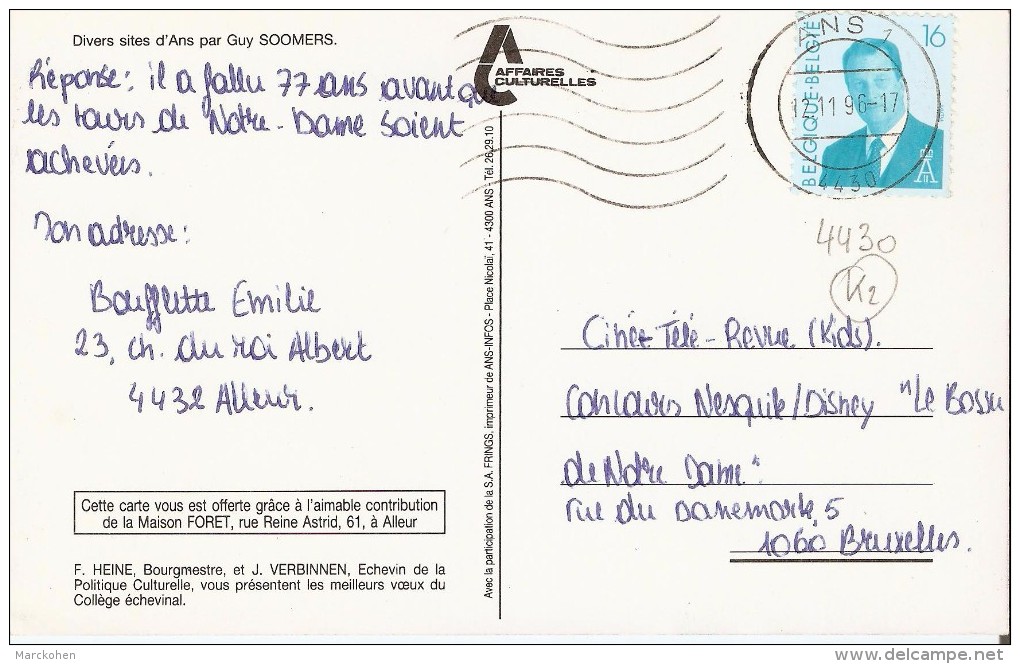 Divers sites d'Ans par Guy SOOMERS.
Réponse: il a fallu 77 ans avant que
les tours de Notre-Dame soient
achevées.
Mon adresse:
Boufflette Emilie
23, ch. du roi Albert
4432 Alleur.
Cette carte vous est offerte grâce à l'aimable contribution
de la Maison FORET, rue Reine Astrid, 61, à Alleur
F. HEINE, Bourgmestre, et J. VERBINNEN, Echevin de la
Politique Culturelle, vous présentent les meilleurs vœux du
Collège échevinal.
AFFAIRES
CULTURELLES
Avec la participation de la S.A. FRINGS, imprimeur de ANS-INFOS - Place Nicolaï, 41 - 4300 ANS - Tél. 26.29.10
ANS
12-11 96-17
4430
16
BELGIQUE-BELGIË
4430
K2
Ciné-Télé-Revue (Kids).
Concours Nesquik/Disney "Le Bossu
de Notre Dame"
rue du Danemark, 5
1060 Bruxelles.
Marckohen
delcampe.net